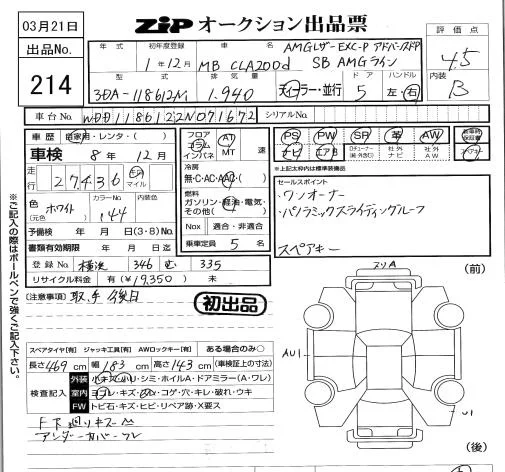 03月21日
ZIP オークション出品票
出品No.
214
年式 初年度登録 車名 AMGレザーEXC-P アドバンスドP
1年12月 MB CLA200d SB AMGライン
型式 排気量 ドア ハンドル
3DA-118612M 1.940 ディーラー・並行 5 左・右
評価点
4.5
内装
B
車台No. WDD1186122N071672 シリアルNo.
車歴 自家用・レンタ・( )
車検 8年12月
走行 27436 km マイル
色(元色) ホワイト カラーNo. 144 内装色
予備検 年 月 日(3・8)No.
書類有効期限 年 月 日迄
登録No. 横浜 346 む 335
リサイクル料金 有(¥19,350) 未
フロア コラム インパネ AT MT 速
冷房 無・C・AC・AAC・( )
燃料 ガソリン・軽油・電気・その他( )
Nox 適合・非適合
乗車定員 5 名
PS PW SR 革 AW 新車時保証書
ナビ エアB 社外ナビ 社外AW スペアキー
*上記太枠内は標準装備品
セールスポイント
・ワンオーナー
・パノラミックスライディングルーフ
スペアキー
(注意事項) 取,手 後日
初出品
スペアタイヤ[有] ジャッキ工具[有] AWロックキー[有] ある場合のみ○
長さ469cm 幅183cm 高さ143cm (車検証上の寸法)
検査記入
外装 小キズ・凹・シミ・ホイルA・ドアミラー(A・ワレ)
室内 ヨゴレ・キズ・スレ・コゲ・穴・キレ・破れ・ウキ
FW トビ石・キズ・ヒビ・リペア跡・X要ス
F下廻りキズ
アンダーカバーワレ
スリA
(前)
AU1
U1
(後)
※ご記入の際はボールペンで強くご記入下さい。